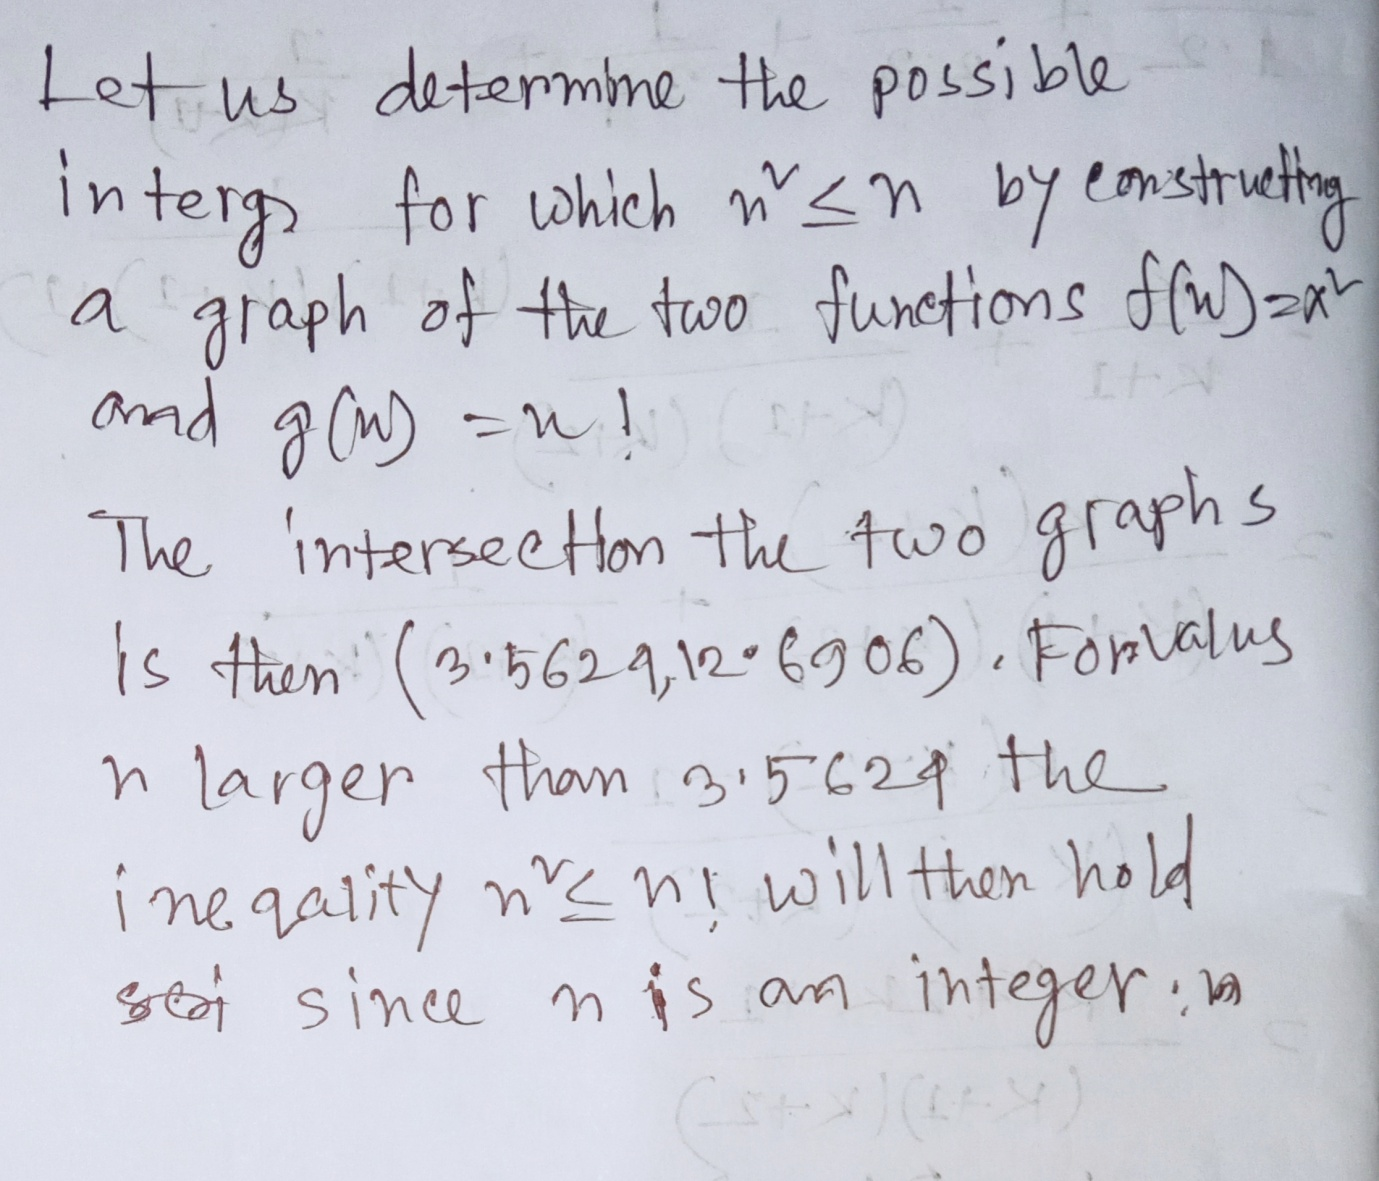 Let us determine the possible
intergs for which n² ≤ n by constructing
a graph of the two functions f(n)=x²
and g(n) = n!
The intersection the two graphs
is then (3.5624,12.6906). For valus
n larger than 3.5624 the
ineqality n² ≤ n! will then hold
since n is an integer.